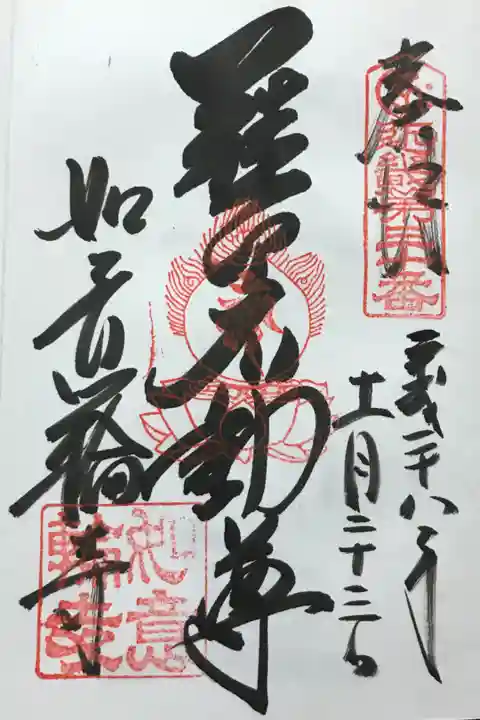 奉拝
平成二十八年
十一月二十三日
難切不動尊
如意輪寺
如意
輪寺